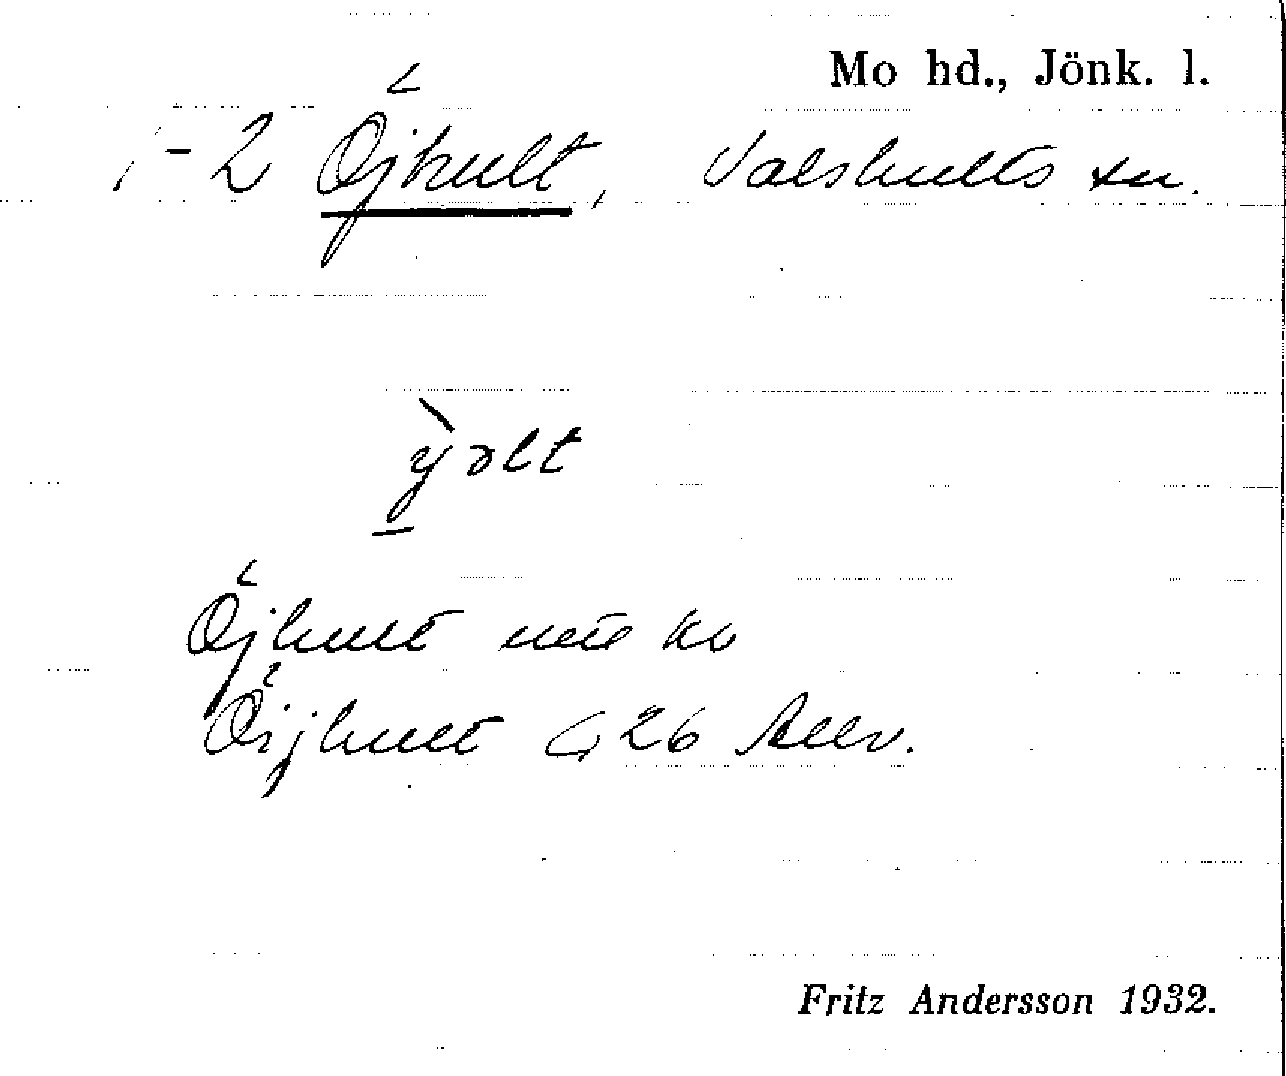 Mo hd., Jönk. l.
1-2 Öjhult, Valshults sn.
ỳ̠əlt
Öjhult
Öijhult 26
Fritz Andersson 1932.